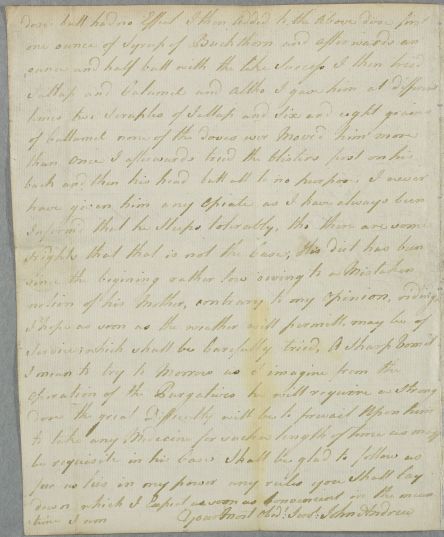 dose but had no Effect I then added to the above dose first
one ounce of Syrup of Buckthorn and afterwards an
ounce and half but with the like Success I then tried
Jallap and Calamel and altho I gave him at different
times two Scruples of Jallap and Six and eight grains
of Callamel none of the doses ever Moved him more
than once I afterwards tried the blisters first on his
back and then his head but all to no purpose. I never
have given him any Opiate as I have always been
Informd that he Sleeps tolerably, tho there are some
Nights that that is not the Case, His diet has been
since the begining rather low owing to a Mistaken
notion of his Mother, contrary to my Opinion, riding
I hope as soon as the weather will permitt, may be of
Service, which shall be Carefully tried, A Sharp Vomit
I mean to try to Morrow as I imagine from the
Operation of the Purgatives he will require a Strong
dose the great difficulty will be to prevail Upon him
to take any Medicine for such a length of time as may
be requisite in his Case Shall be glad to follow as
far as lies in my power any rules you Shall lay
down which I Expect as soon as Convenient in the mean
time I am Your Most Obdt. Servt. John Andrew